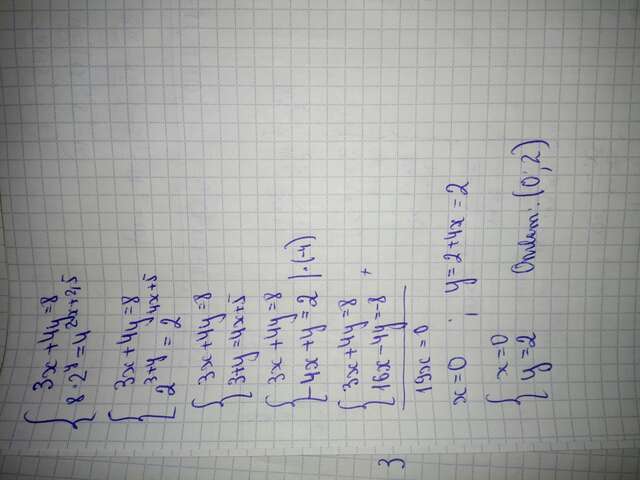 3x+4y=8
8·2^y=4^{2x+2,5}
3x+4y=8
2^{3+y}=2^{4x+5}
3x+4y=8
3+y=4x+5
3x+4y=8
-4x+y=2 |·(-4)
3x+4y=8 +
16x-4y=-8
19x=0
x=0 ; y=2+4x=2
x=0
y=2 Ответ: (0; 2)
3